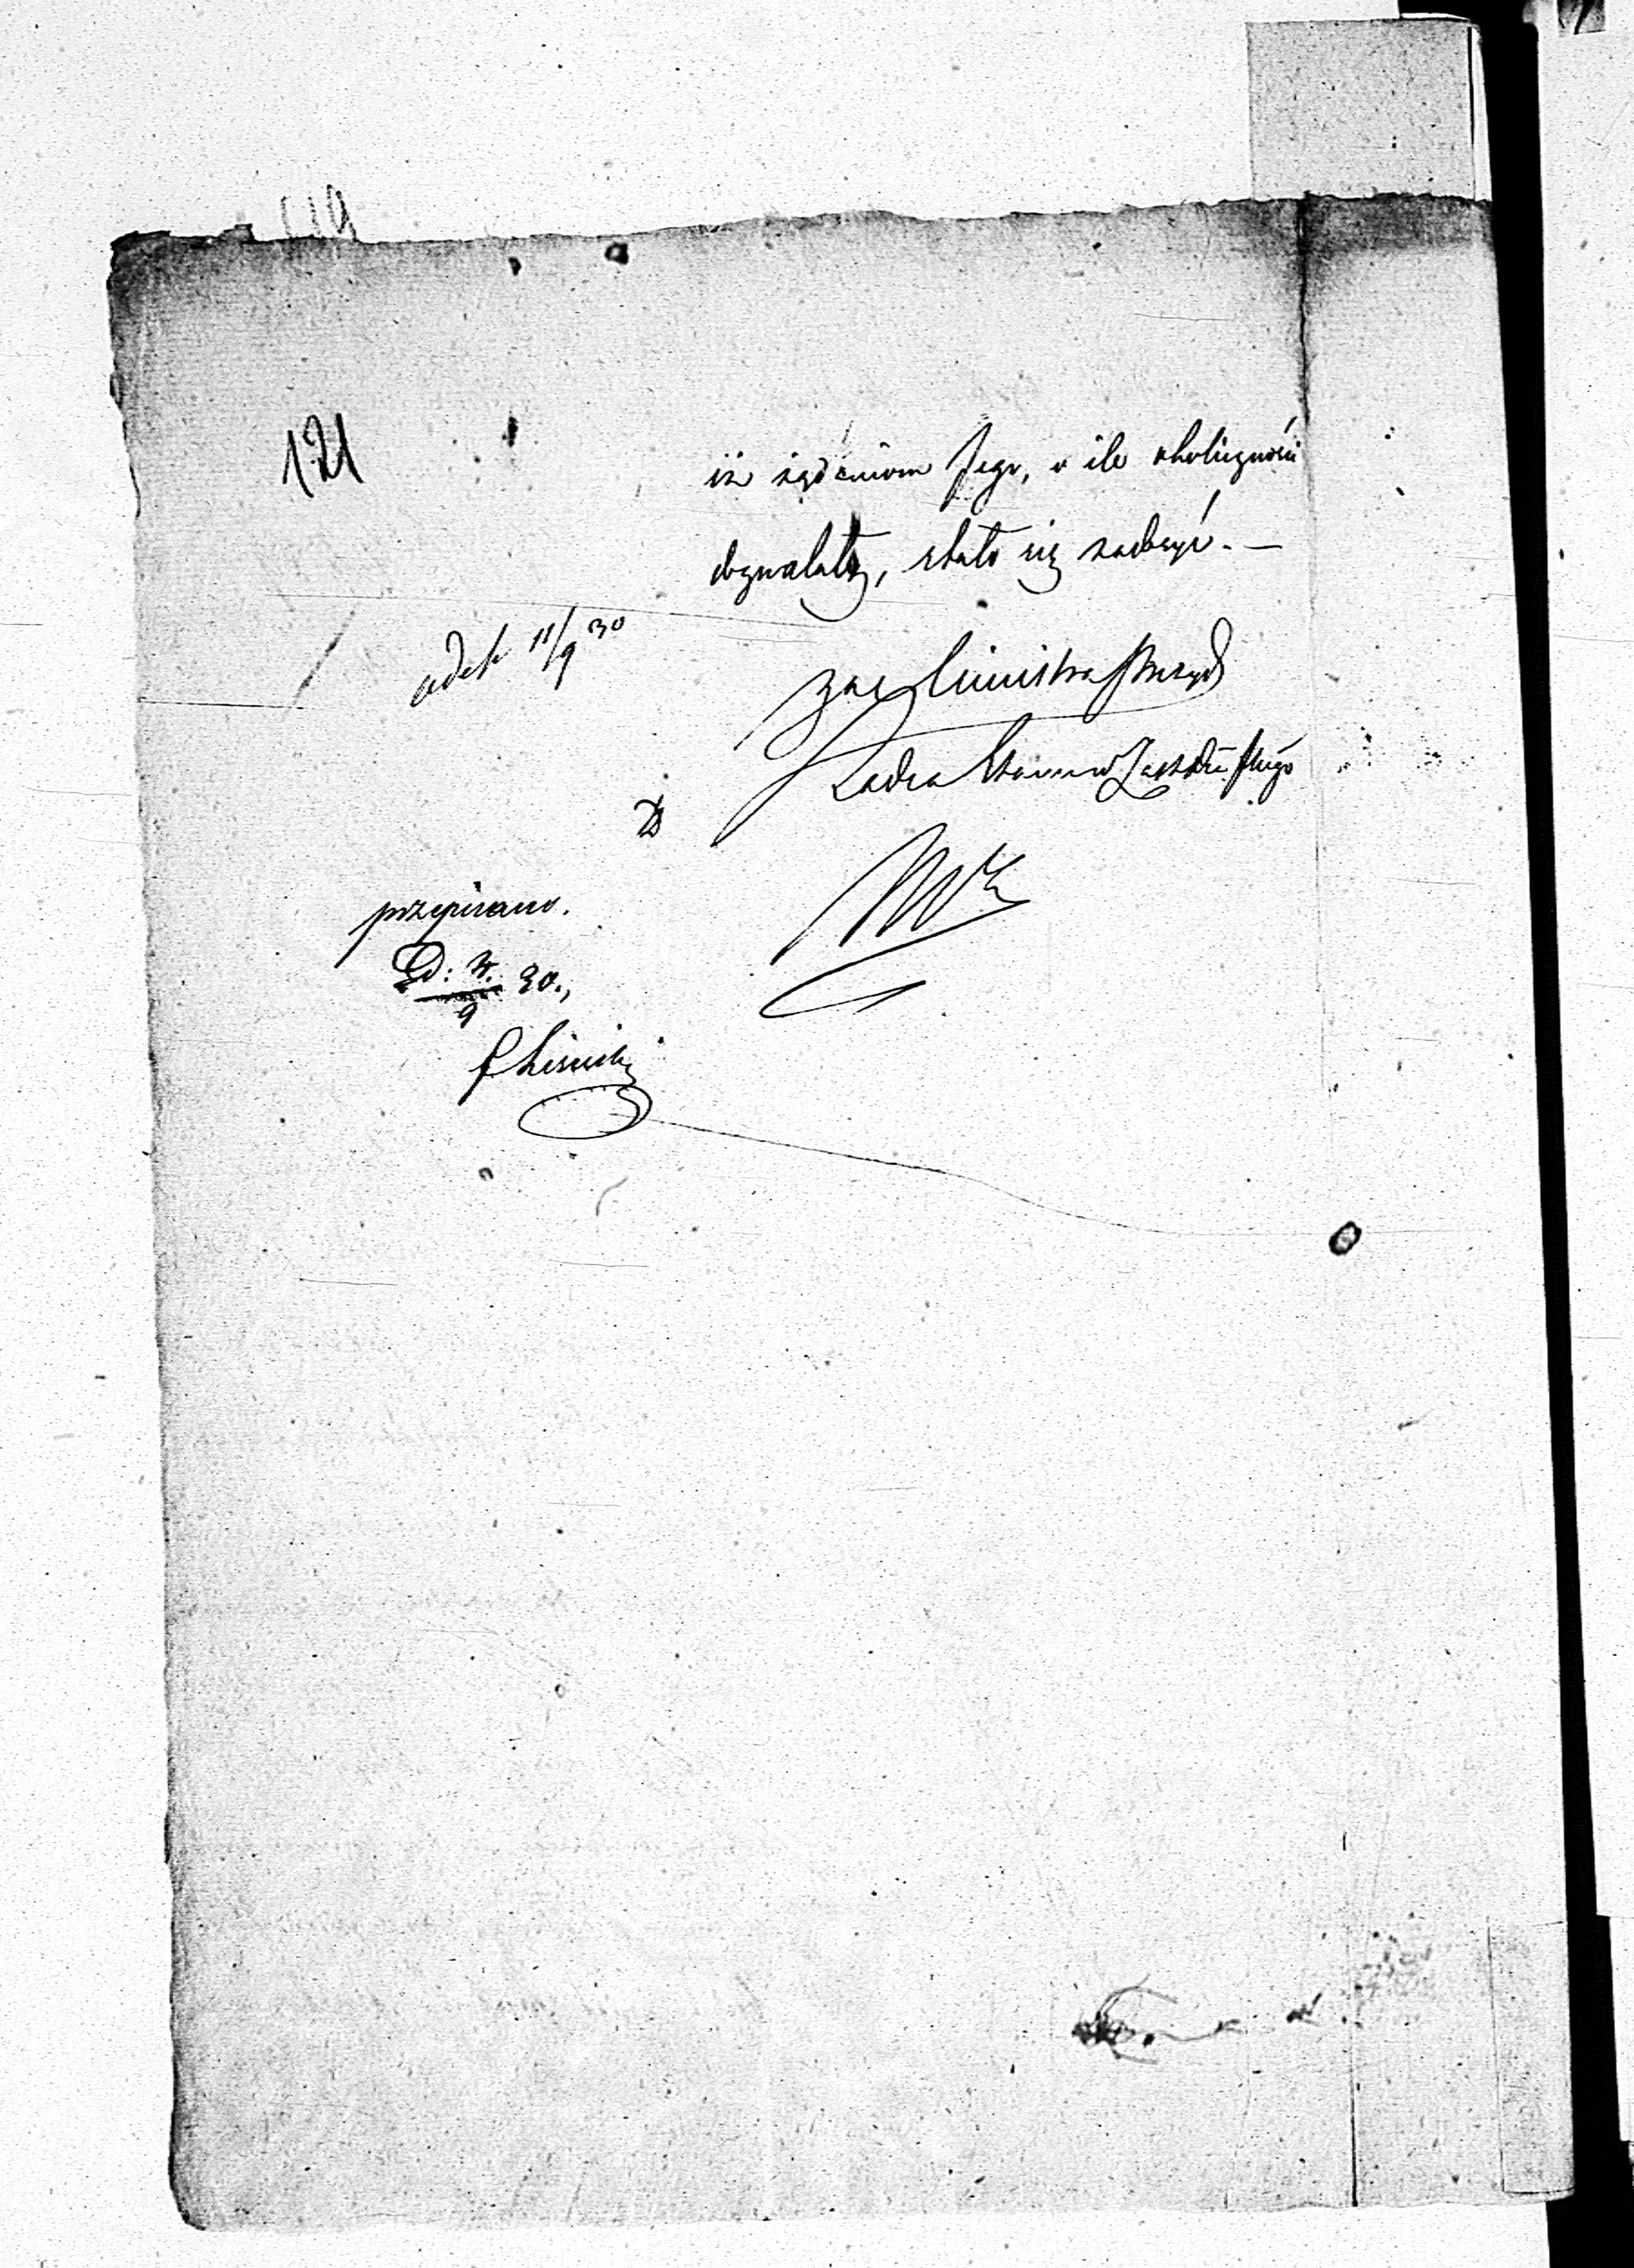 121
iż żądaniom Jego, o ile okoliczności
dozwalały, stało się zadosyć. —
odeb 11/9 30
za Ministra Prezyd
Radca Stanu w Zastępstwie
przepisano.
D: 11/9 30.,